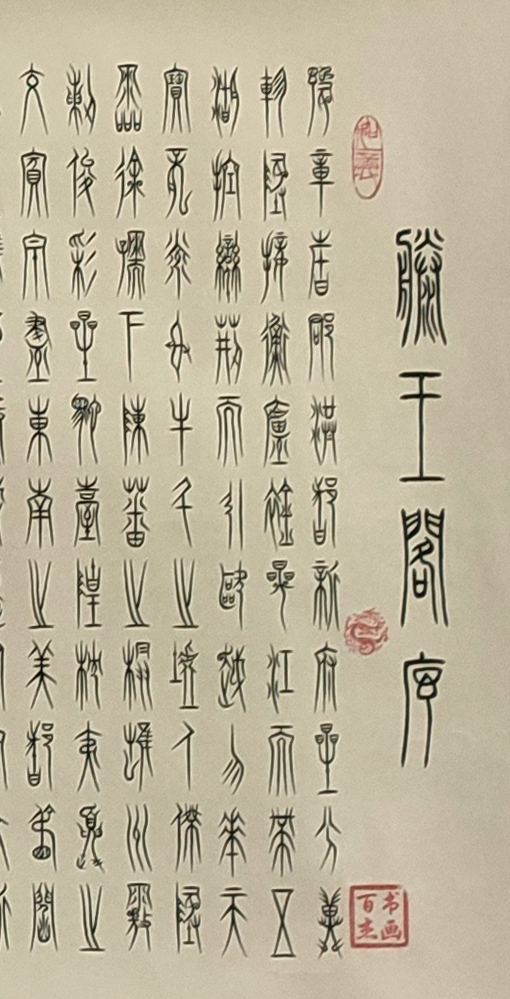 滕王閣序
豫章故郡洪都新府星分翼
軫地接衡廬襟三江而帶五
湖控蠻荊而引甌越物華天
寶龍光射牛斗之墟人傑地
靈徐孺下陳蕃之榻雄州霧
列俊彩星馳臺隍枕夷夏之
交賓主盡東南之美都督閻
书画百杰